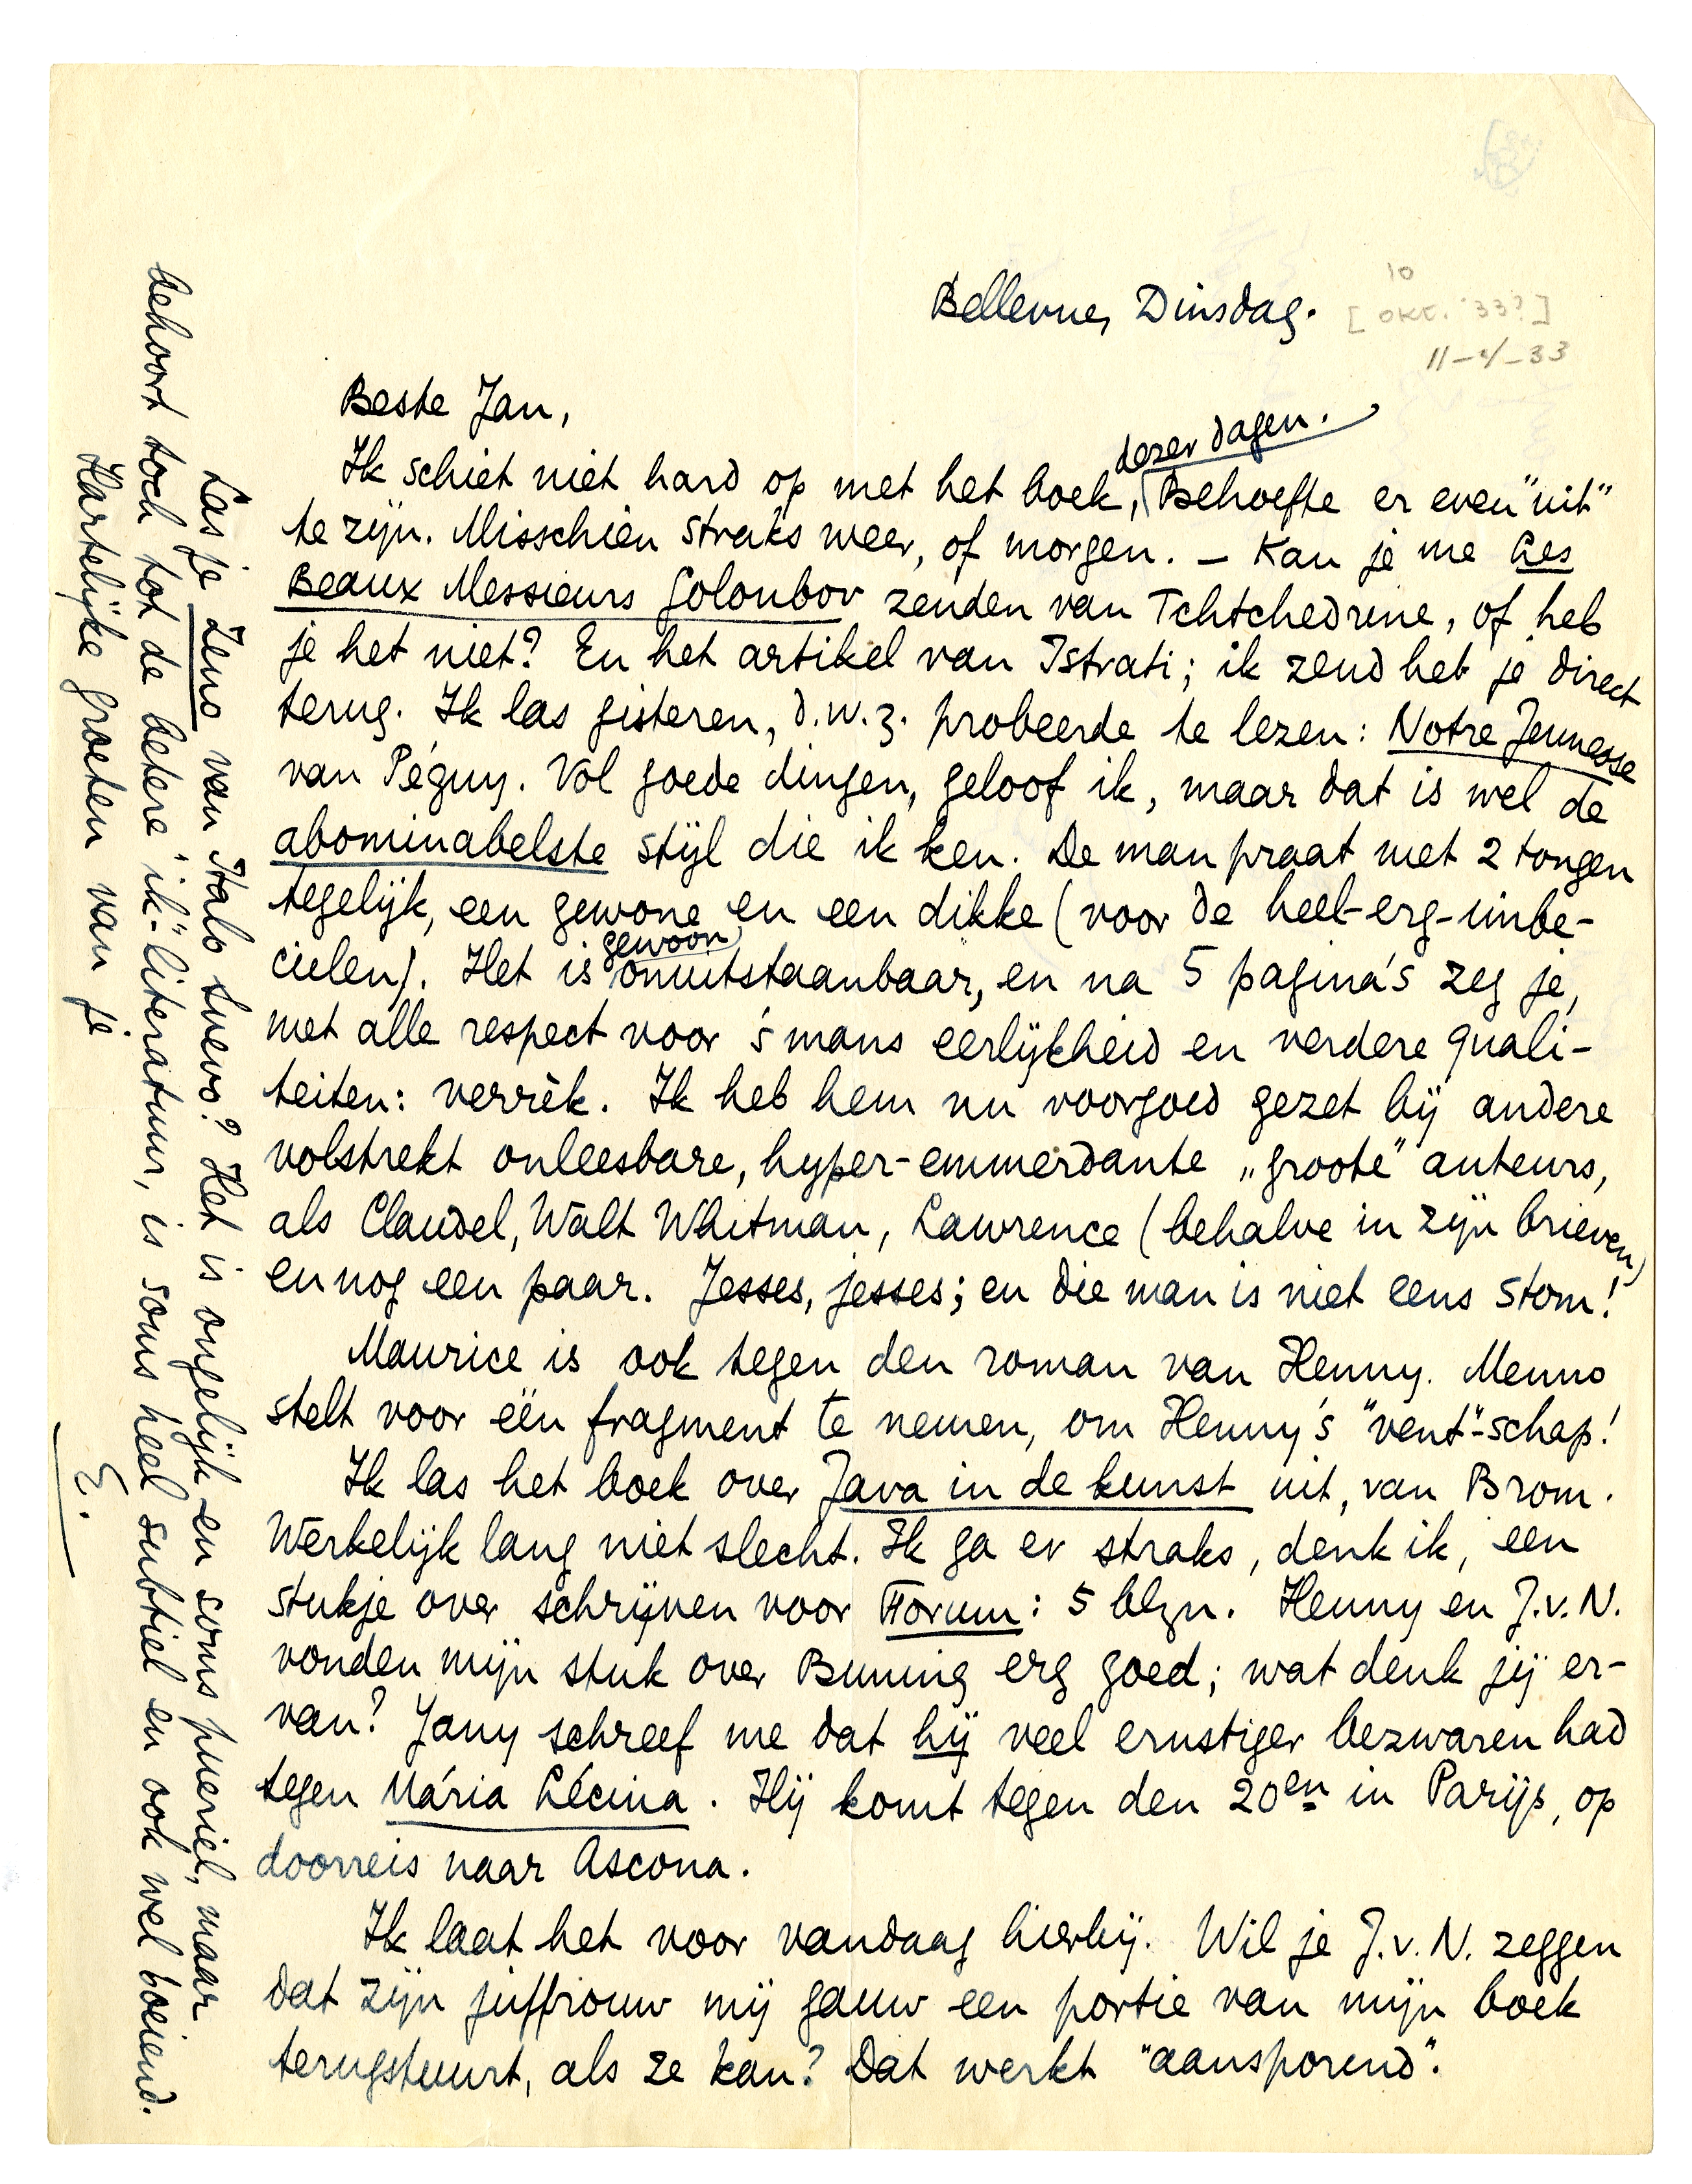 Bellevue, Dinsdag.
10
[okt. '33?]
Beste Jan,
dezer dagen.
Ik schiet niet hard op met het boek, Behoefte er even "uit"
te zijn. Misschien straks weer, of morgen. – Kan je me Les
Beaux Messieurs Goloubov zenden van Tchtchedrine, of heb
je het niet? En het artikel van Istrati; ik zend het je direct
terug. Ik las gisteren, d.w.z. probeerde te lezen: Notre Jeunesse
van Péguy. Vol goede dingen, geloof ik, maar dat is wel de
abominabelste stijl die ik ken. De man praat met 2 tongen
tegelijk, een gewone en een dikke (voor de heel-erg-imbe-
cielen). Het is gewoon onuitstaanbaar, en na 5 pagina's zeg je,
met alle respect voor 's mans eerlijkheid en verdere quali-
teiten: verrèk. Ik heb hem nu voorgoed gezet bij andere
volstrekt onleesbare, hyper-emmerdante „groote" auteurs,
als Claudel, Walt Whitman, Lawrence (behalve in zijn brieven)
en nog een paar. Jesses, jesses; en die man is niet eens stom!
Maurice is ook tegen den roman van Henny. Menno
stelt voor één fragment te nemen, om Henny's "vent"-schap!
Ik las het boek over Java in de kunst uit, van Brom.
Werkelijk lang niet slecht. Ik ga er straks, denk ik, een
stukje over schrijven voor Forum: 5 blzn. Henny en J.v.N.
vonden mijn stuk over Buning erg goed; wat denk jij er-
van? Jany schreef me dat hij veel ernstiger bezwaren had
tegen Mária Lécina. Hij komt tegen den 20en in Parijs, op
doorreis naar Ascona.
Ik laat het voor vandaag hierbij. Wil je J.v.N. zeggen
dat zijn juffrouw mij gauw een portie van mijn boek
terugstuurt, als ze kan? Dat werkt "aansporend".
Las je Zeno van Italo Svevo? Het is ongelijk en soms pueriel, maar
behoort toch tot de betere "ik"-literatuur, is soms heel subtiel en ook wel boeiend.
Hartelijke groeten van je
E.